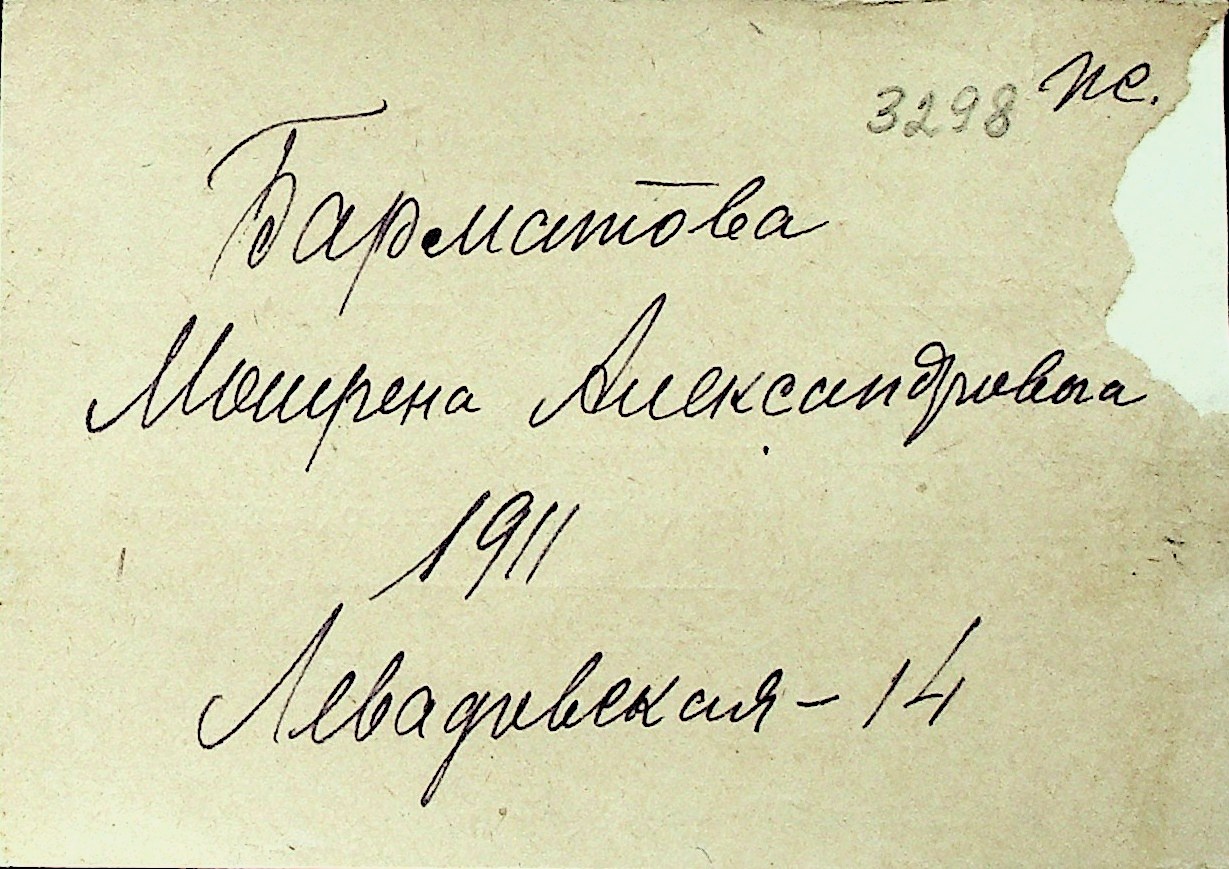 3298 пс.
Барматова
Мотрена Александровна
1911
Левадовская - 14